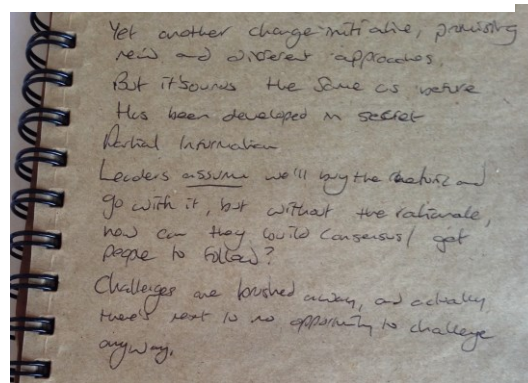 Yet another change initiative, promising
new and different approaches.
But it sounds the same as before
Has been developed in secret
Partial Information
Leaders assume we'll buy the rhetoric and
go with it, but without the rationale,
how can they build consensus/ get
people to follow?
Challenges are brushed away, and actually,
there's next to no opportunity to challenge
anyway.